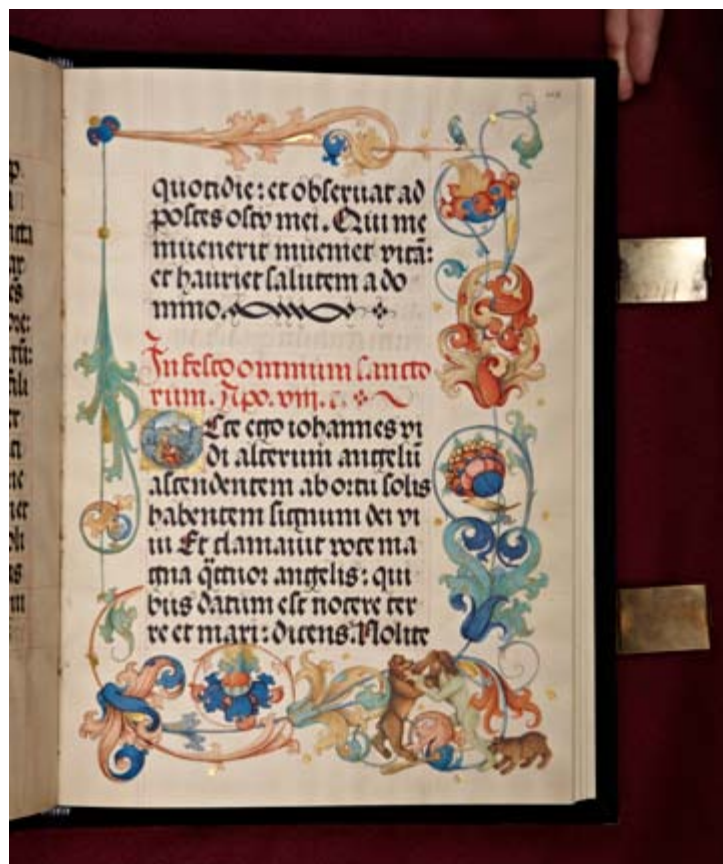 quotidie: et obseruat ad
postes ostii mei. Qui me
inuenerit inueniet vitā:
et hauriet salutem a do
mino.
In festo omnium sancto
rum. Apo. vii. c.
Ecce ego iohannes vi
di alterum angelū
ascendentem ab ortu solis
habentem signum dei vi
ui Et clamauit voce ma
gna q̄ttuor angelis: qui
bus datum est nocere ter
re et mari: dicens. Nolite